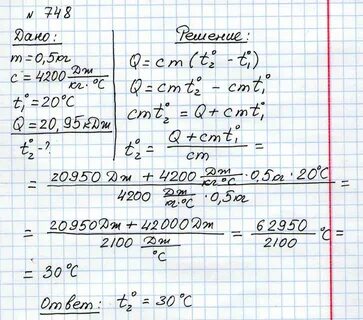 № 748
Дано:
m = 0,5кг
c = 4200 Дж/кг·°C
t₁° = 20°C
Q = 20,95кДж
t₂° - ?
Решение:
Q = cm (t₂° - t₁°)
Q = cmt₂° - cmt₁°
cmt₂° = Q + cmt₁°
t₂° = (Q + cmt₁°)/cm =
= (20950 Дж + 4200 Дж/кг°C · 0,5кг · 20°C)/(4200 Дж/кг°C · 0,5кг) =
= (20950Дж + 42000Дж)/(2100 Дж/°C) = 62950/2100 °C =
= 30°C
Ответ: t₂° = 30°C